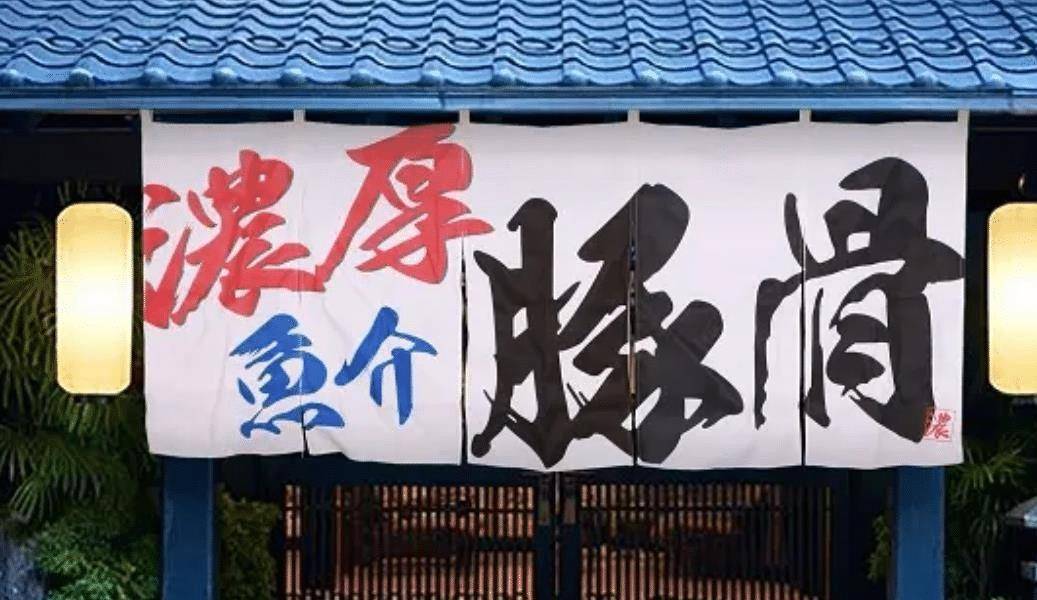 濃厚
魚介
豚骨
濃